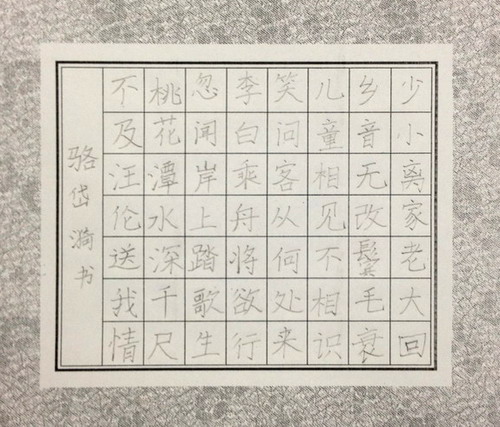 少小离家老大回
乡音无改鬓毛衰
儿童相见不相识
笑问客从何处来
李白乘舟将欲行
忽闻岸上踏歌生
桃花潭水深千尺
不及汪伦送我情
骆岱漪书